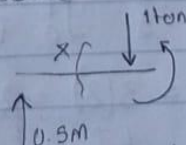 1ton
x
0.5m